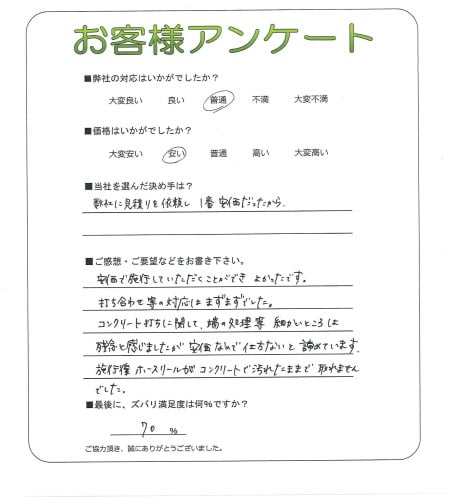 お客様アンケート
■弊社の対応はいかがでしたか？
大変良い 良い 普通 不満 大変不満
■価格はいかがでしたか？
大変安い 安い 普通 高い 大変高い
■当社を選んだ決め手は？
数社に見積りを依頼し 1番安価だったから.
■ご感想・ご要望などをお書き下さい。
安価で施行していただくことができ よかったです。
打ち合わせ等の対応は まずまずでした。
コンクリート打ちに関して、端の処理等 細かいところは
残念と感じましたが 安価なので仕方ないと 諦めています.
施行後 ホースリールが コンクリートで汚れたままで 取れません
でした。
■最後に、ズバリ満足度は何%ですか？
70 %
ご協力頂き、誠にありがとうございました。